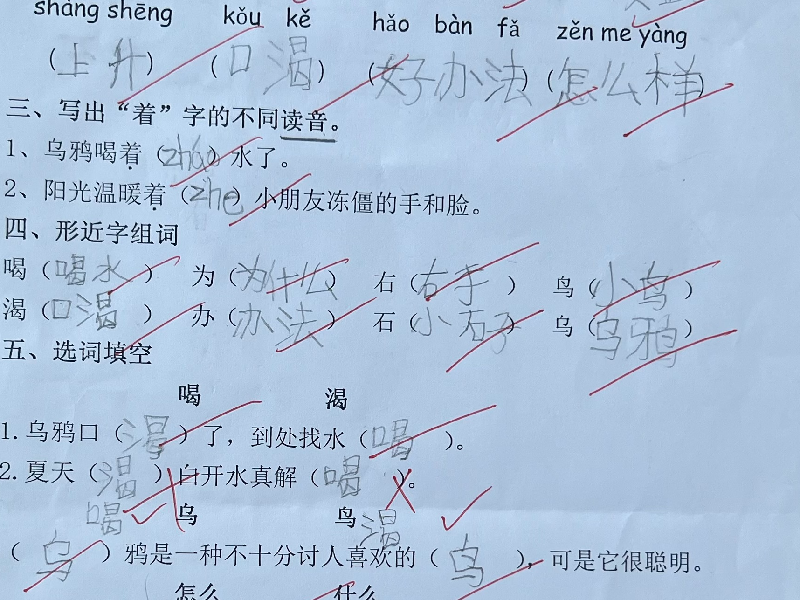 shàng shēng kǒu kě hǎo bàn fǎ zěn me yàng
(上升) (口渴) (好办法) (怎么样)
三、写出“着”字的不同读音。
1、乌鸦喝着(zháo)水了。
2、阳光温暖着(zhe)小朋友冻僵的手和脸。
四、形近字组词
喝(喝水) 为(为什么) 右(右手) 鸟(小鸟)
渴(口渴) 办(办法) 石(小石子) 乌(乌鸦)
五、选词填空
喝 渴
1.乌鸦口(渴)了，到处找水(喝)。
2.夏天(渴)白开水真解(喝)。
喝 乌 鸟 渴
(乌)鸦是一种不十分讨人喜欢的(鸟)，可是它很聪明。
怎么 什么